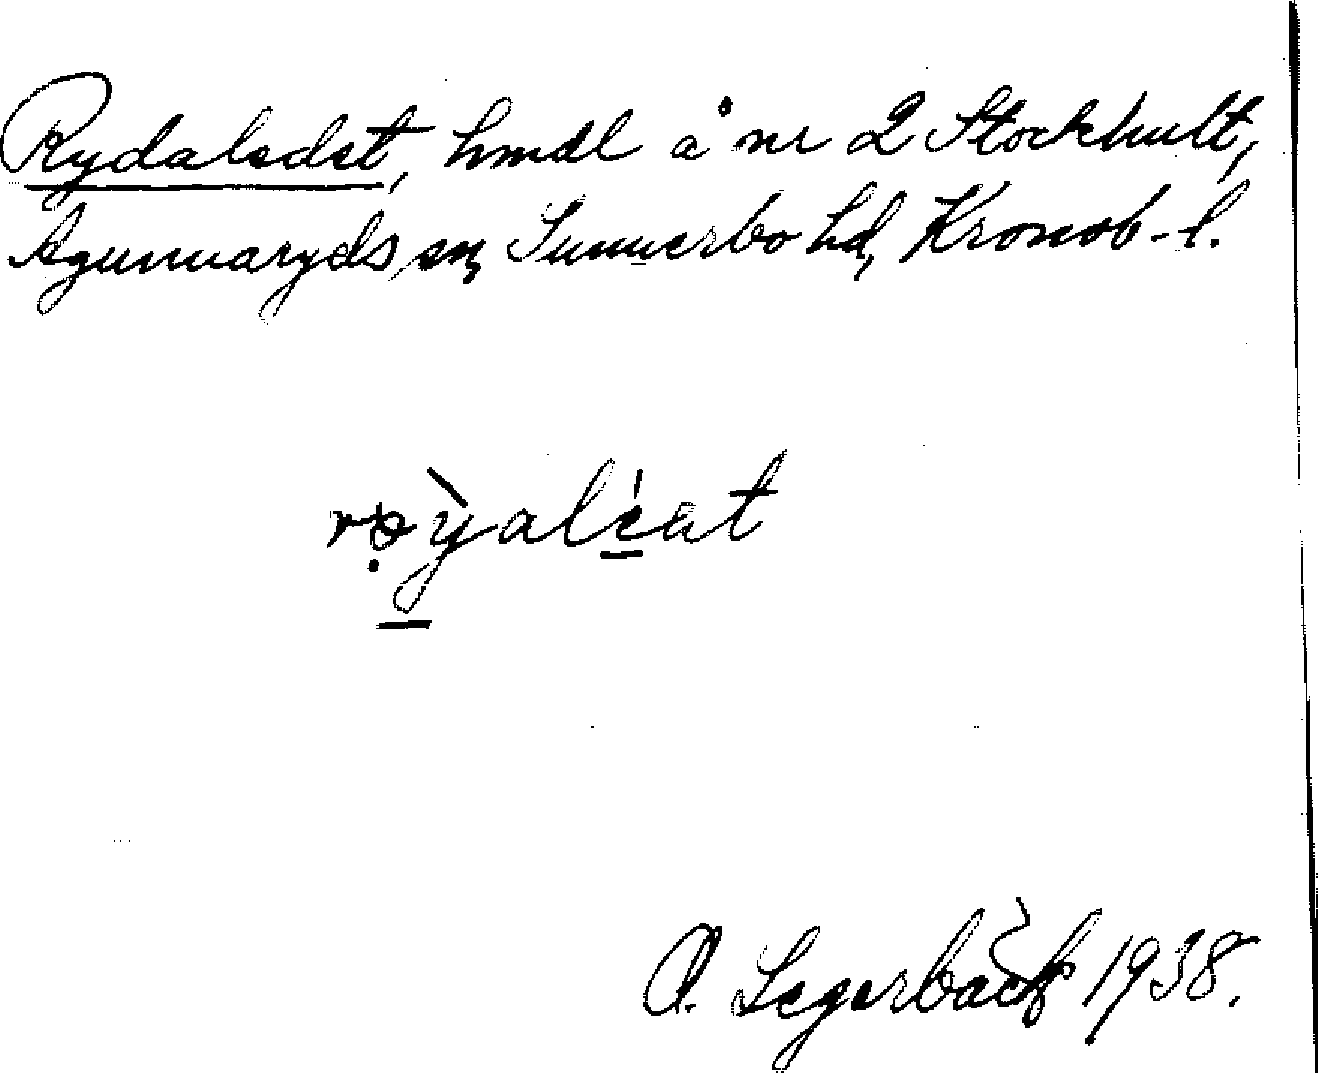 Rydaledet, hmdl å nr 2 Stockhult,
Agunnaryds sn, Sunnerbo hd, Kronob-l.
A. Segerbäck 1938.